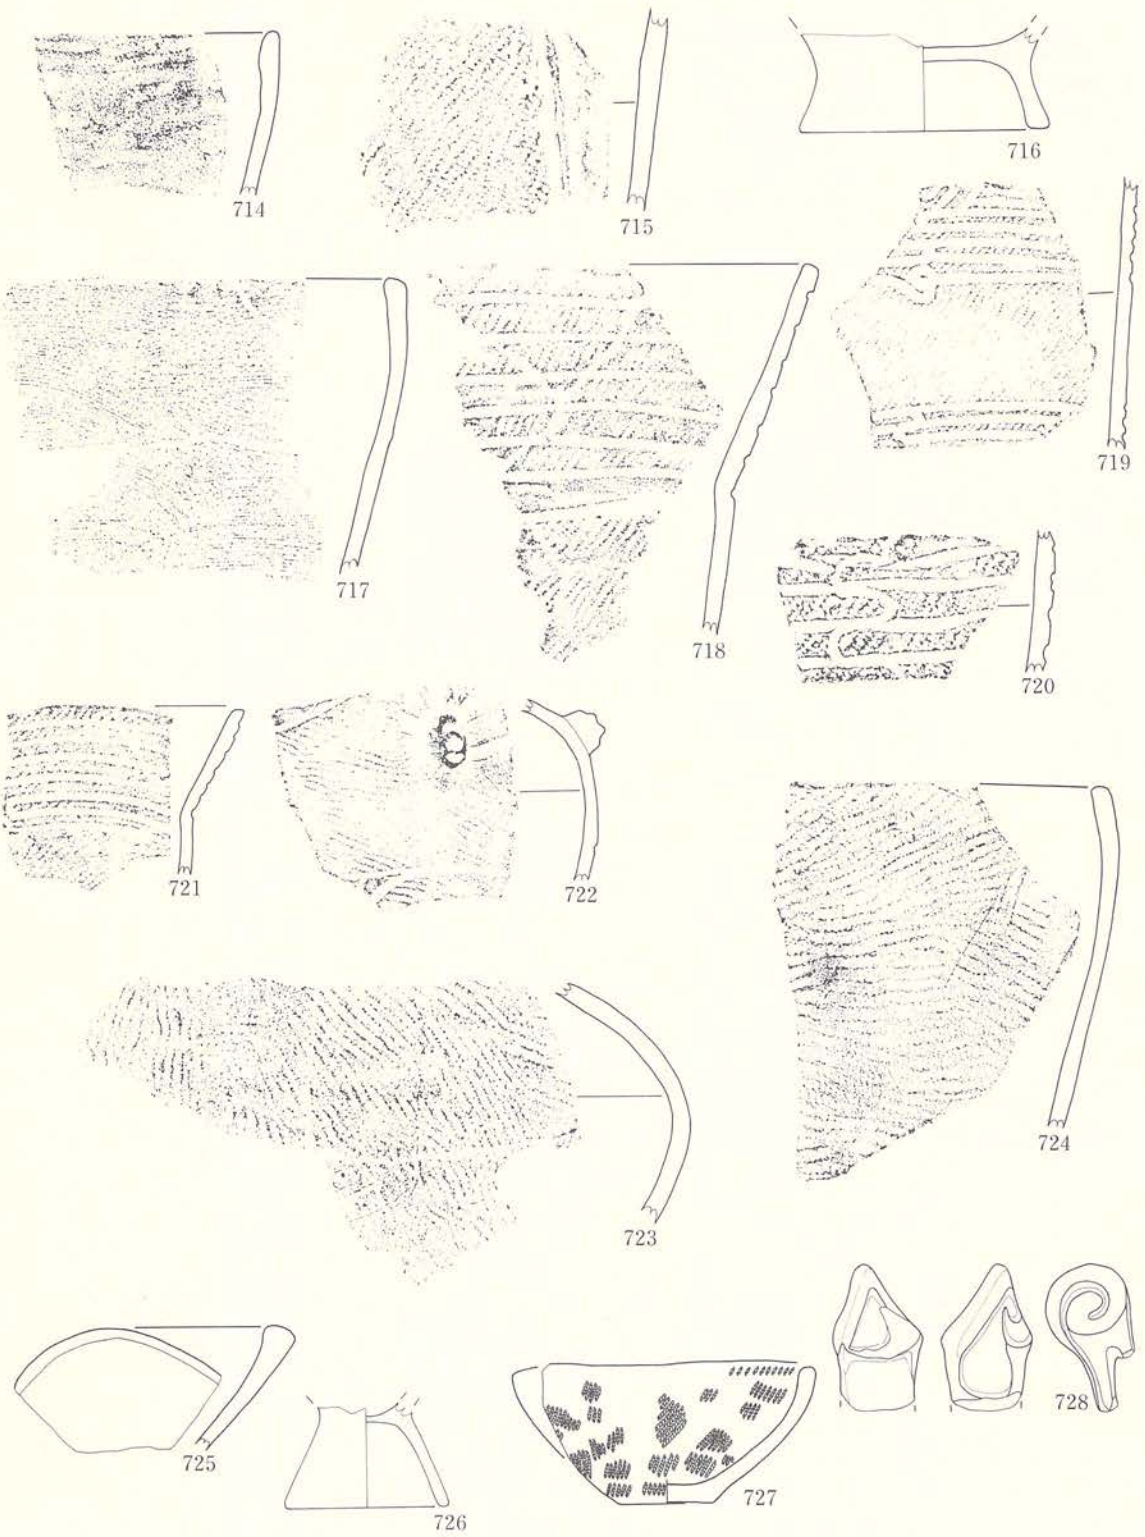 714
715
716
717
718
719
720
721
722
723
724
725
726
727
728